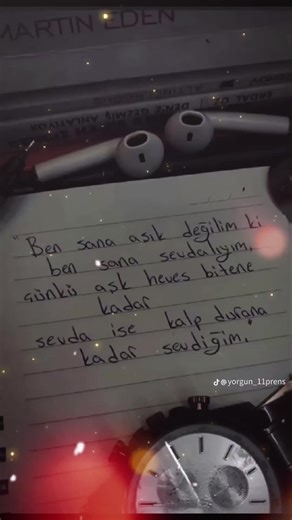 MARTIN EDEN
"Ben sana aşık değilim ki
ben sana sevdalıyım.
Çünkü aşk heves bitene
kadar
sevda ise kalp durana
kadar sevdiğim.
@yorgun_11prens